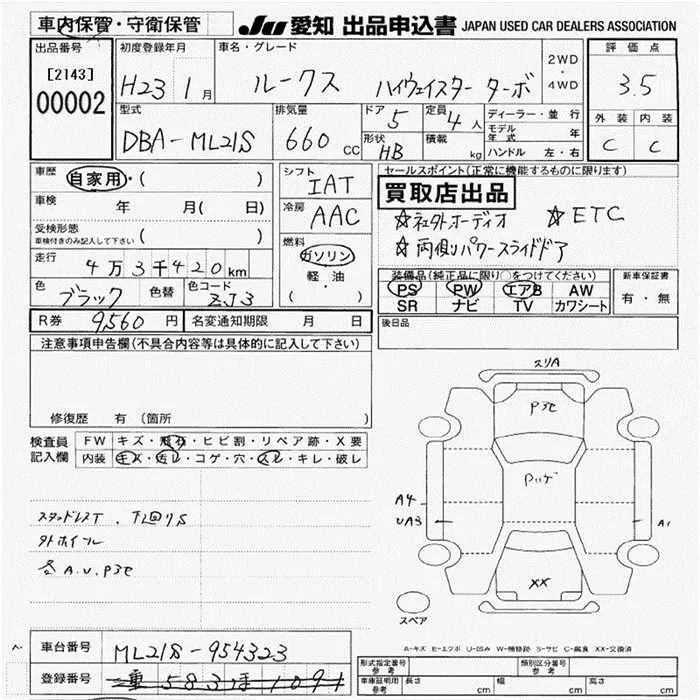 車内保管・守衛保管 JU 愛知 出品申込書 JAPAN USED CAR DEALERS ASSOCIATION
出品番号
[2143]
00002
初度登録年月
H23 1月
車名・グレード
ルークス ハイウェイスター ターボ
2WD
・
4WD
評価点
3.5
外装 内装
C C
型式
DBA-ML21S
排気量
660 CC
ドア 5
定員 4人
形状 HB
積載 kg
ディーラー・並行
モデル年式 年
ハンドル 左・右
車歴 自家用・( )
車検 年 月( 日)
受検形態
車検付きのみ記入して下さい ( )
走行 4万3千420km
色 ブラック 色替 色コード ZJ3
シフト IAT
冷房 AAC
燃料
ガソリン
軽・油
( )
セールスポイント(正常に機能するものに限ります)
買取店出品
☆社外オーディオ ☆ETC
☆両側パワースライドドア
装備品(純正品に限り○をつけてください)
PS PW エアB AW
SR ナビ TV カワシート
新車保証書
有・無
R券 9,560円 名変通知期限 月 日
後日品
注意事項申告欄(不具合内容等は具体的に記入して下さい)
修復歴 有 (箇所 )
検査員記入欄
FW キズ・飛石・ヒビ割・リペア跡・X要
内装 キズ・汚レ・コゲ・穴・スレ・キレ・破レ
スタッドレスT、下回りS
外ホイール
各A.U.P3セ
スリA
P3セ
A4
UA3
A1
XX
スペア
A-キズ E-エクボ U-凹み W-補修跡 S-サビ C-腐食 XX-交換済
車台番号 ML21S-954323
登録番号
形式指定番号 参考
類別区分番号 参考
車庫証明用 参考
長さ cm 幅 cm 高さ cm